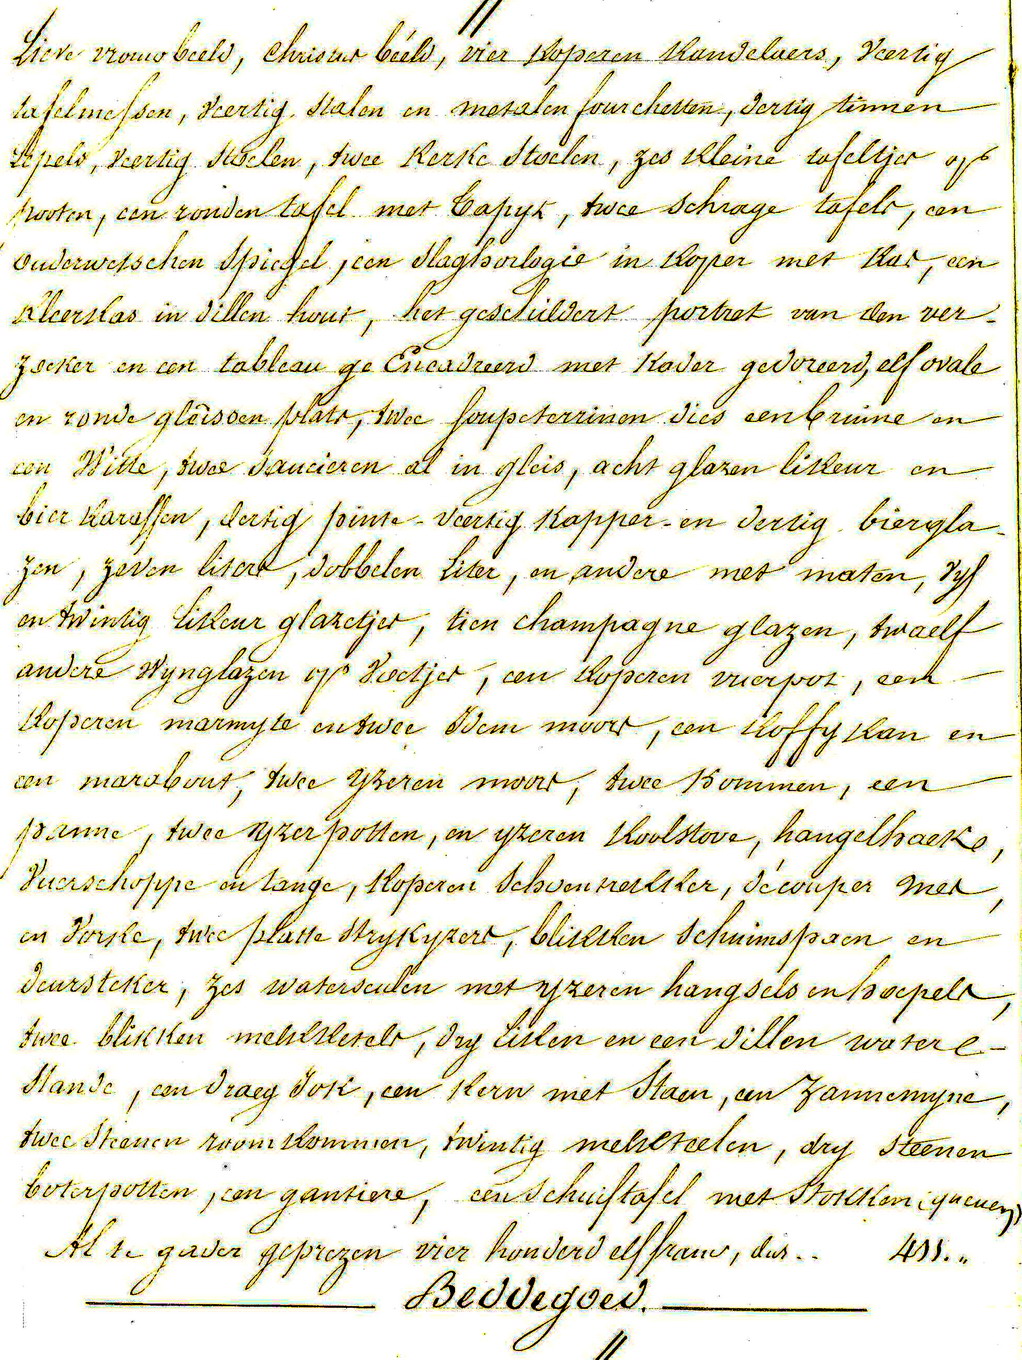 Lieve vrouw beeld, Christus béeld, vier Koperen Kandelaers, Veertig
tafelmessen, Veertig stalen en metalen fourchetten, dertig tinnen
Lepels, Veertig Stoelen, twee Kerke Stoelen, zes Kleine tafeltjes op
pooten, een ronden tafel met Tapyt, twee schrage tafels, een
Ouderwetschen Spiegel, een Slaghorlogie in Koper met Kas, een
Kleerkas in dillen hout, het geschildert portret van den ver-
zoeker en een tableau ge Encadreerd met Kader gedoreerd, elf ovale
en ronde gleissen plats, twee soupeterrinen dies een bruine en
een Witte, twee Saucieren al in gleis, acht glazen likeur en
bier Karaffen, dertig pinte- veertig Kapper- en dertig biergla-
zen, zeven liters, dobbelen Liter, en andere met maten, Vyf
en twintig Likeur glazetjes, tien champagne glazen, twaelf
andere Wynglazen op Voetjes, een Koperen vuerpot, een
Koperen marmyte en twee Idem moors, een Koffy Kan en
een marabout, twee Yzeren moors, twee Kommen, een
panne, twee yzerpotten, en yzeren Koolstove, hangelhaeke,
Vuerschoppe en tange, Koperen Schoentrekker, découper mes,
en Vorke, twee platte Strykyzers, blikken Schuimspaen en
deursteker, zes waterseulen met yzeren hangsels en hoepels,
twee blikken melkketels, dry Eiken en een dillen water e-
Stande, een draeg Jok, een Kern met Staen, een Zannemyne,
twee Steenen room Kommen, twintig melkteelen, dry steenen
boterpotten, een gantiere, een Schuiftafel met Stokken (queuen)
Al te gader geprezen vier honderd elf francs, dus.. 411.„
Beddegoed.